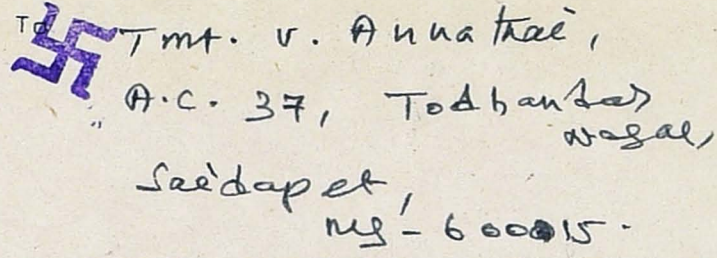 To
Tmt. V. Annathai,
A.C. 37, Todhunter
Nagar,
Saidapet,
Ms - 600015.